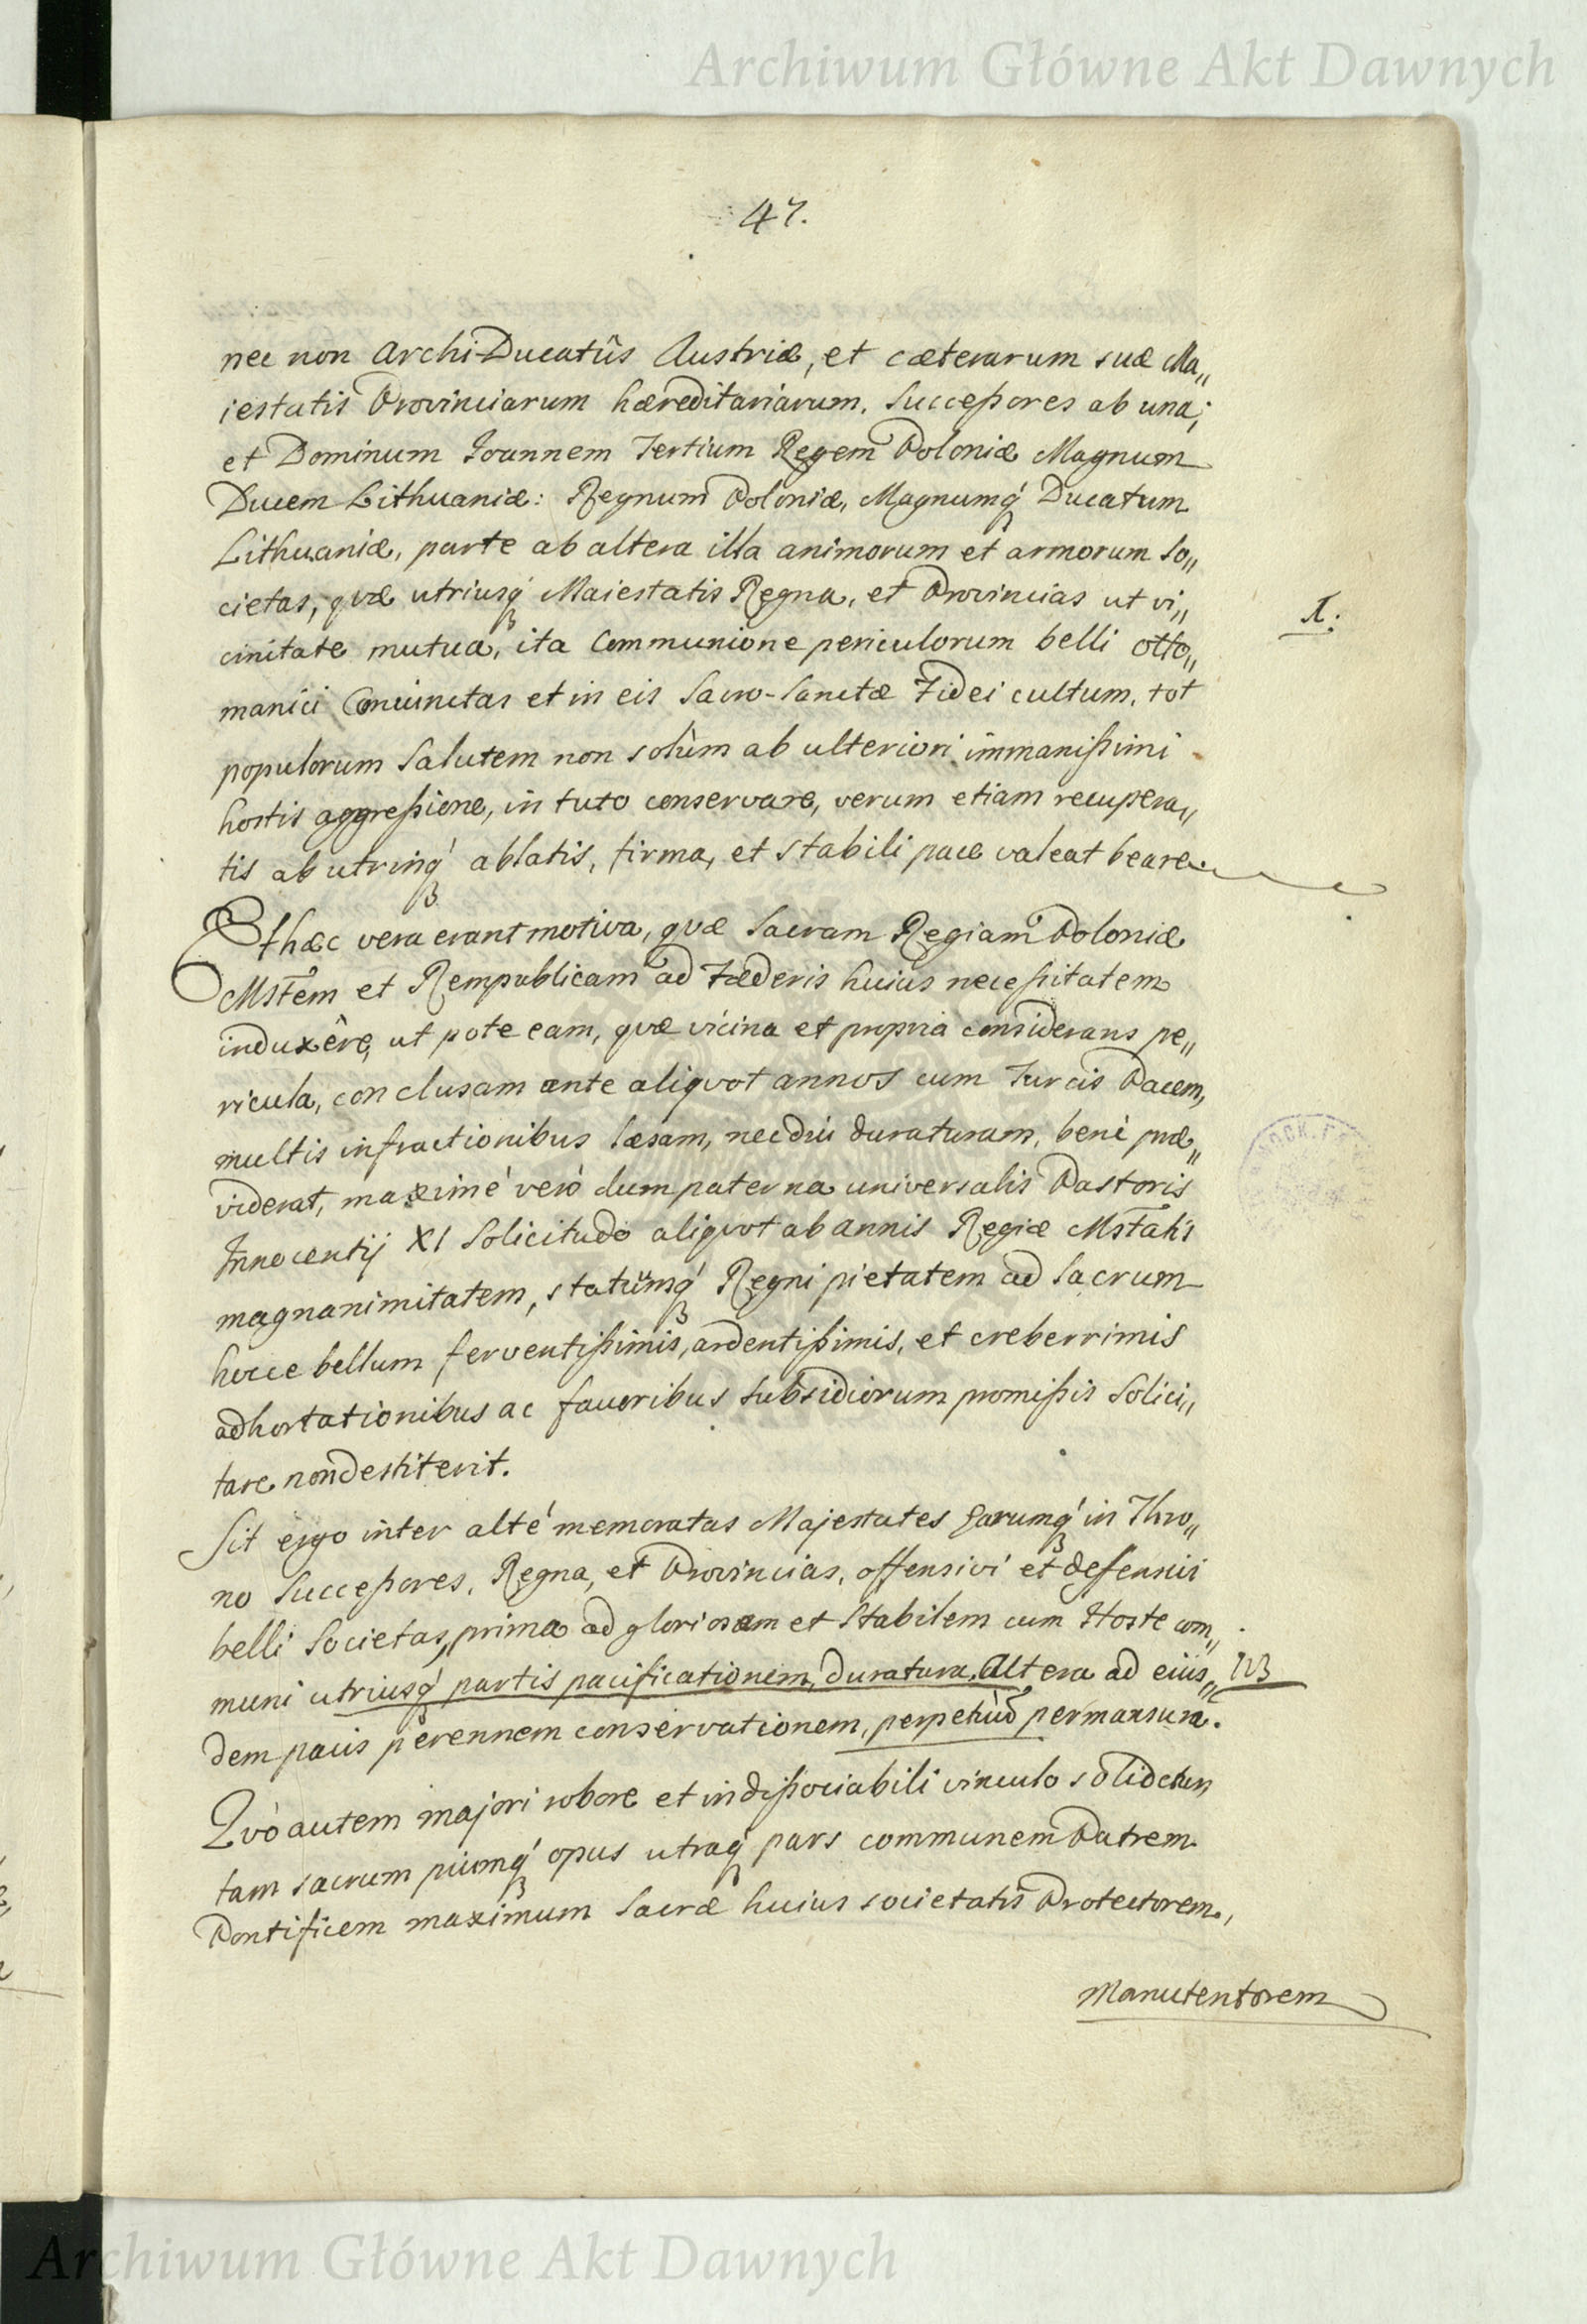 Archiwum Główne Akt Dawnych
47.
nec non Archi-Ducatûs Austriæ, et cæterarum suæ Ma„
iestatis Provinciarum hæreditariarum. Successores ab una;
et Dominum Joannem Tertium Regem Poloniæ Magnum
Ducem Lithuaniæ: Regnum Poloniæ, Magnumq́ Ducatum
Lithuaniæ, parte ab altera illa animorum et armorum So„
cietas, quæ utriusq́ Maiestatis Regna, et Provincias ut vi„
I.
cinitate mutua, ita Communione periculorum belli Otto„
manici Coniunctas et in eis Sacro-Sanctæ Fidei cultum, tot
populorum Salutem non solùm ab ulteriori immanissimi
hostis aggressione, in tuto conservare, verum etiam recupera„
tis ab utrinq́ ablatis, firma, et stabili pace valeat beare.
Et hæc vera erant motiva, quæ Sacram Regiam Poloniæ
Mstem et Rempublicam ad Fæderis huius necessitatem
induxêre, ut pote eam, quæ vicina et propria considerans pe„
ricula, conclusam ante aliqvot annos cum Turcis Pacem,
multis infractionibus læsam, nec diù duraturam, benè præ„
viderat, maximé veró dum paterna universalis Pastoris
Innocentij XI Solicitudo aliqvot ab annis Regiæ Mstatis
magnanimitatem, statûmq́ Regni pietatem ad Sacrum
hocce bellum ferventissimis, ardentissimis, et creberrimis
adhortationibus ac favoribus subsidiorum promissis Solici„
tare non destiterit.
Sit ergo inter alté memoratas Majestates Earumq́ in Thro„
no Successores, Regna, et Provincias, offensivi et defensivi
belli Societas, prima ad gloriosam et Stabilem cum Hoste com„
muni utriusq́ partis pacificationem, duratura, Altera ad eius„ NB
dem pacis perennem conservationem, perpetuò permansura.
Qvò autem majori robore et indissociabili vinculo solidetur,
tam sacrum piumq́ opus utraq́ pars communem Patrem
Pontificem maximum Sacræ huius societatis Protectorem,
Manutentorem
Archiwum Główne Akt Dawnych